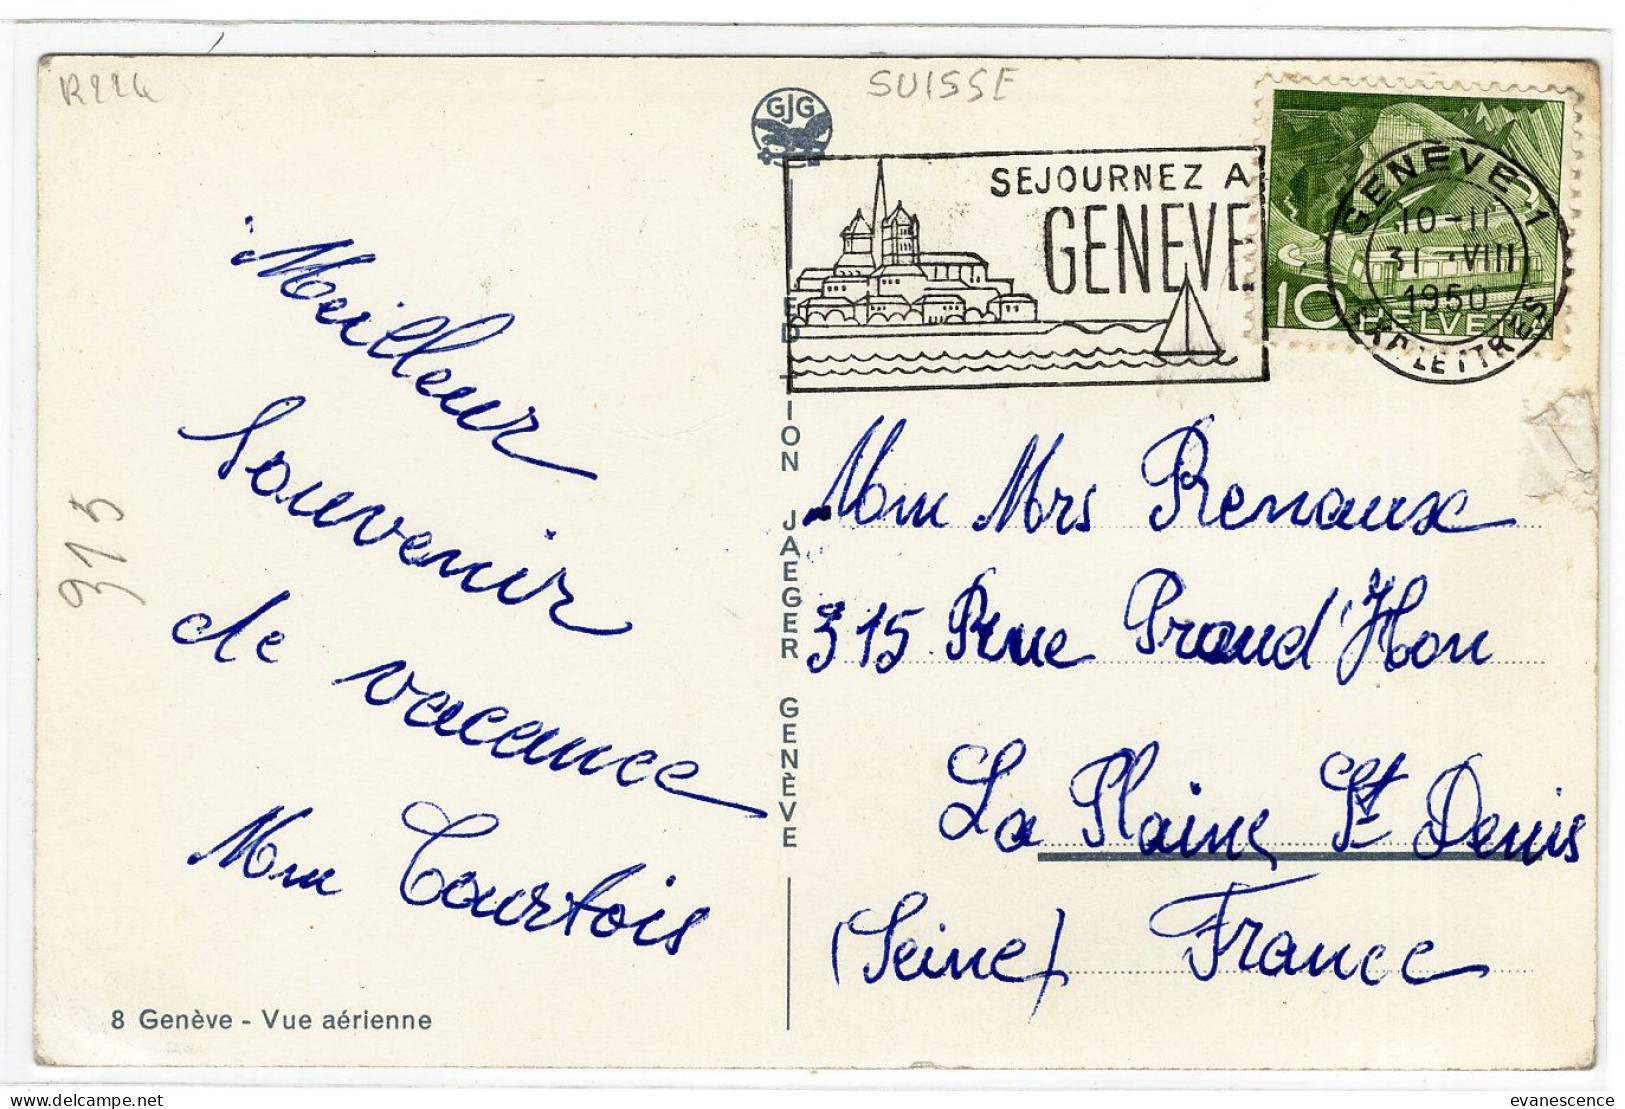 R224
SUISSE
GJG
SEJOURNEZ A
GENEVE
GENÈVE 1
10-11
31-VIII
1950
EXP. LETTRES
10 HELVETIA
Meilleur
Souvenir
de vacance
Mm Courtois
315
EDITION JAEGER GENÈVE
Mm Mrs Renaux
315 Rue Proud'Hon
La Plaine St Denis
(Seine) France
8 Genève - Vue aérienne
evanescence